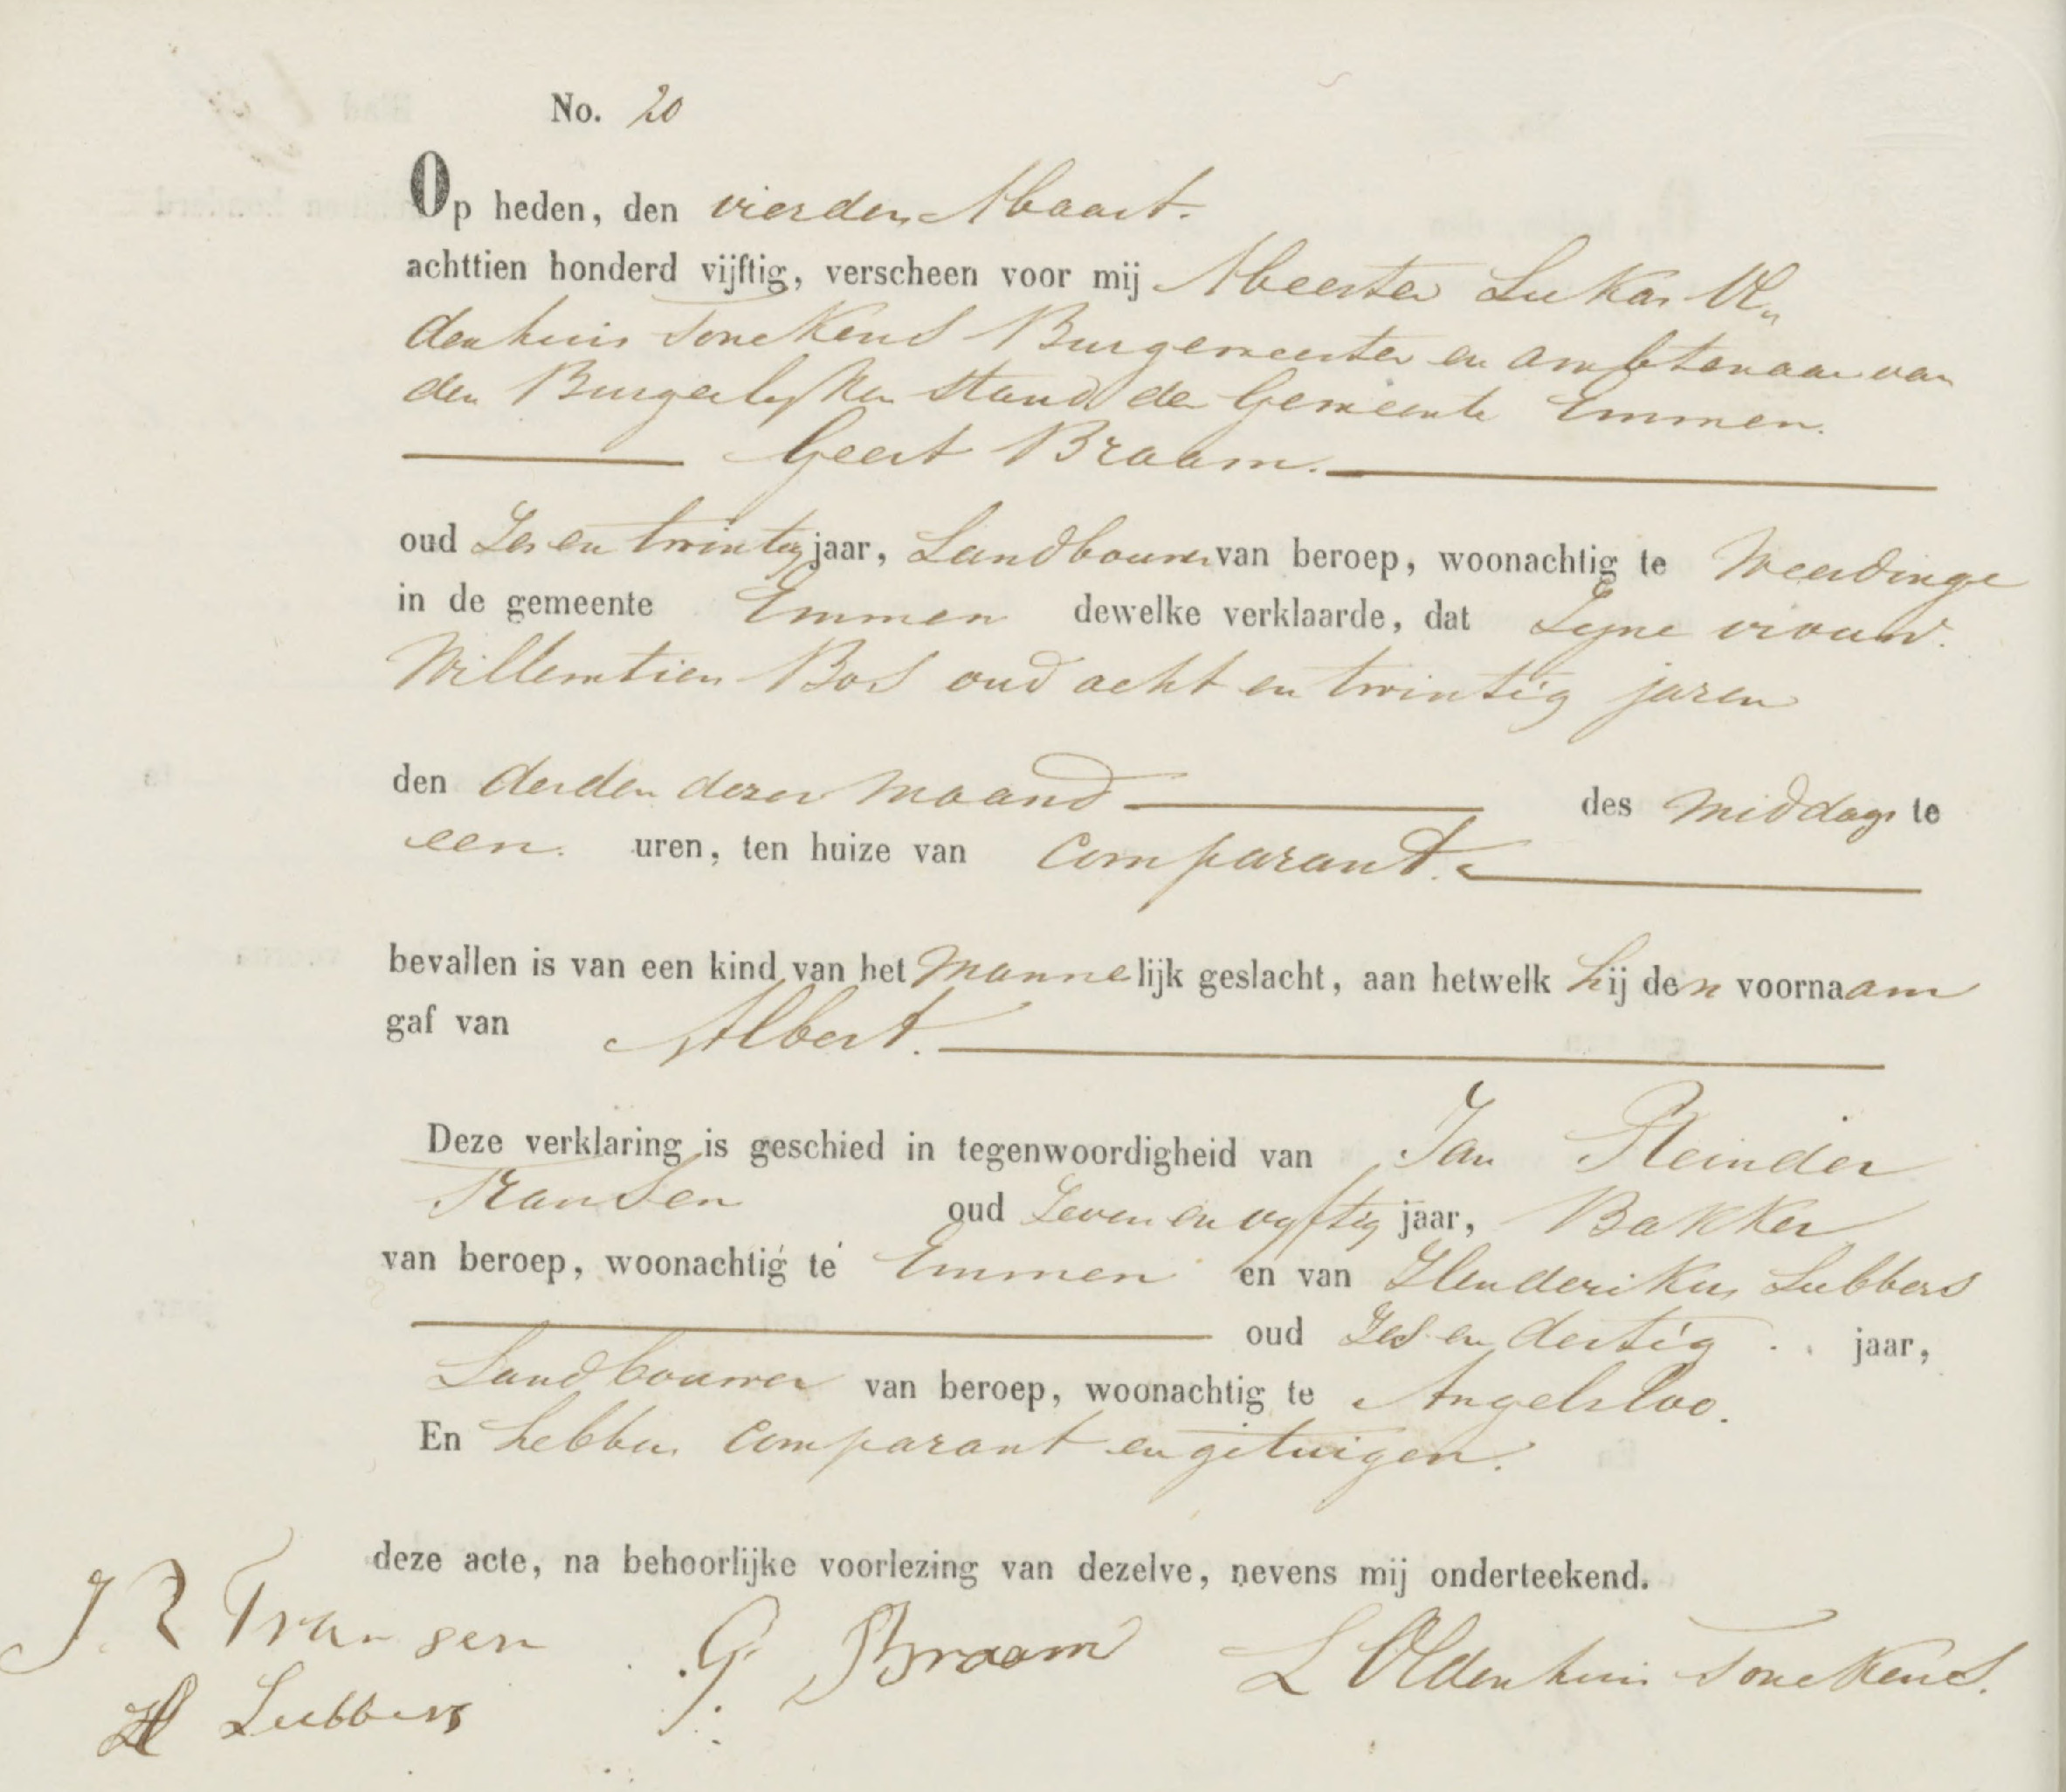 No. 20
Op heden, den vierden Maart.
achttien honderd vijftig, verscheen voor mij Meester Lukas Ol„
denhuis Tonckens Burgemeester en ambtenaar van
den Burgerlyken stand der Gemeente Emmen.
Geert Braam.
oud Zes en twintig jaar, Landbouwer van beroep, woonachtig te Weerdinge
in de gemeente Emmen dewelke verklaarde, dat Zyne vrouw.
Willemtien Bos oud acht en twintig jaren
den derden dezer maand des middags te
een. uren, ten huize van Comparant.
bevallen is van een kind van het mannelijk geslacht, aan hetwelk hij den voornaam
gaf van Albert.
Deze verklaring is geschied in tegenwoordigheid van Jan Reinder
Transen oud Zeven en vyftig jaar, Bakker
van beroep, woonachtig te Emmen en van Henderikus Lubbers
oud Zes en dertig jaar,
Landbouwer van beroep, woonachtig te Angelsloo.
En hebben Comparant en getuigen.
deze acte, na behoorlijke voorlezing van dezelve, nevens mij onderteekend.
J. R Transen G. Braam L Oldenhuis Tonckens.
H Lubbers